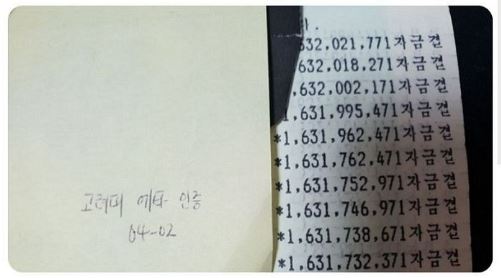 인증
04-02
632,021,771자금결
632,018,271자금결
,632,002,171자금결
1,631,995,471자금결
*1,631,962,471자금결
*1,631,762,471자금결
*1,631,752,971자금결
*1,631,746,971자금결
*1,631,738,671자금결
*1,631,732,371자금결